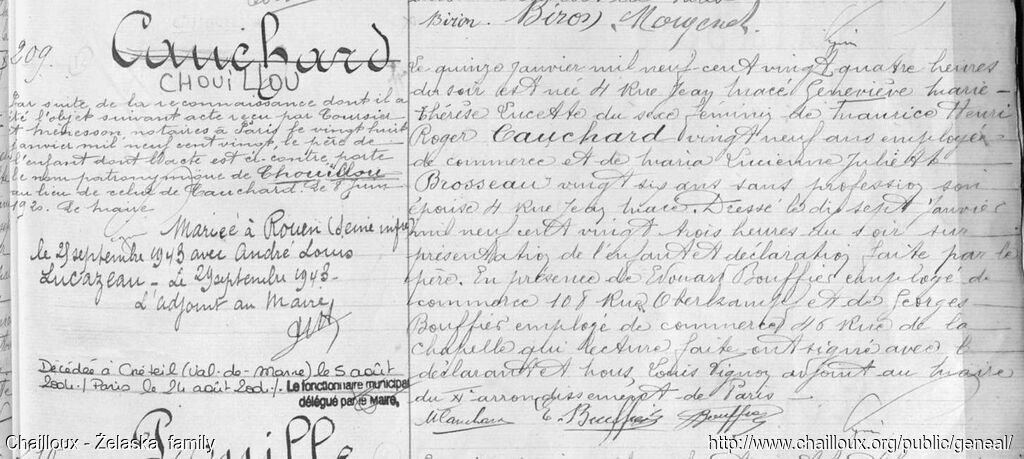 209.
Cauchard
CHOUILLOU
Par suite de la reconnaissance dont il a
été l'objet suivant acte reçu par Toursier
et Menesson notaires à Paris le vingt huit
janvier mil neuf cent vingt, le père de
l'enfant dont l'acte est ci-contre porte
le nom patronymique de Chouillou
au lieu de celui de Cauchard. Le 8 juin
1920. Le Maire
Mariée à Rouen (Seine infre)
le 29 septembre 1943 avec André Louis
Lucazeau - Le 29 septembre 1943-
L'adjoint au Maire
Décédée à Créteil (Val-de-Marne) le 5 août
2004./ Paris le 24 août 2004./. Le fonctionnaire municipal
délégué par le Maire,
Famille
Biron. Biros Mougenot.
Le quinze janvier mil neuf cent vingt, quatre heures
du soir est née 4 Rue Jean Macé Geneviève Marie-
Thérèse Lucette du sexe féminin de Maurice Henri
Roger Cauchard vingt neuf ans employé
de commerce et de Maria Lucienne Juliette
Brosseau vingt six ans sans profession son
épouse 4 Rue Jean Macé. Dressé le dix sept janvier
mil neuf cent vingt trois heures du soir sur
présentation de l'enfant et déclaration faite par le
père. En présence de Edouard Bouffier employé de
commerce 108 Rue Oberkampf et de Georges
Bouffier employé de commerce 46 Rue de la
Chapelle qui lecture faite ont signé avec le
déclarant et nous, Louis Vignot adjoint au maire
du XI arrondissement de Paris-
MCauchard E. Bouffier Bouffier
Chailloux - Żelaska family
http://www.chailloux.org/public/geneal/